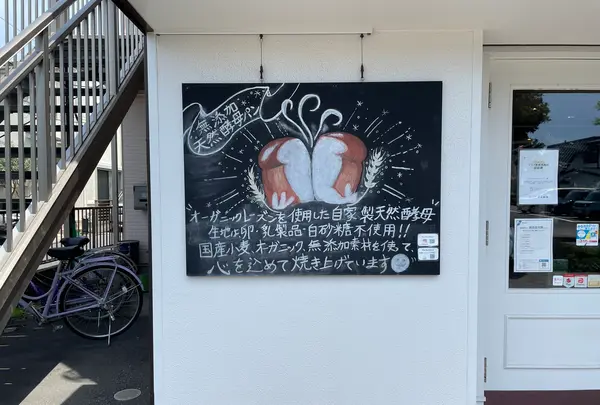 無添加
天然酵母パン
オーガニックレーズンを使用した自家製天然酵母
生地は卵・乳製品・白砂糖不使用!!
国産小麦、オーガニック、無添加素材を使って
心を込めて焼き上げています